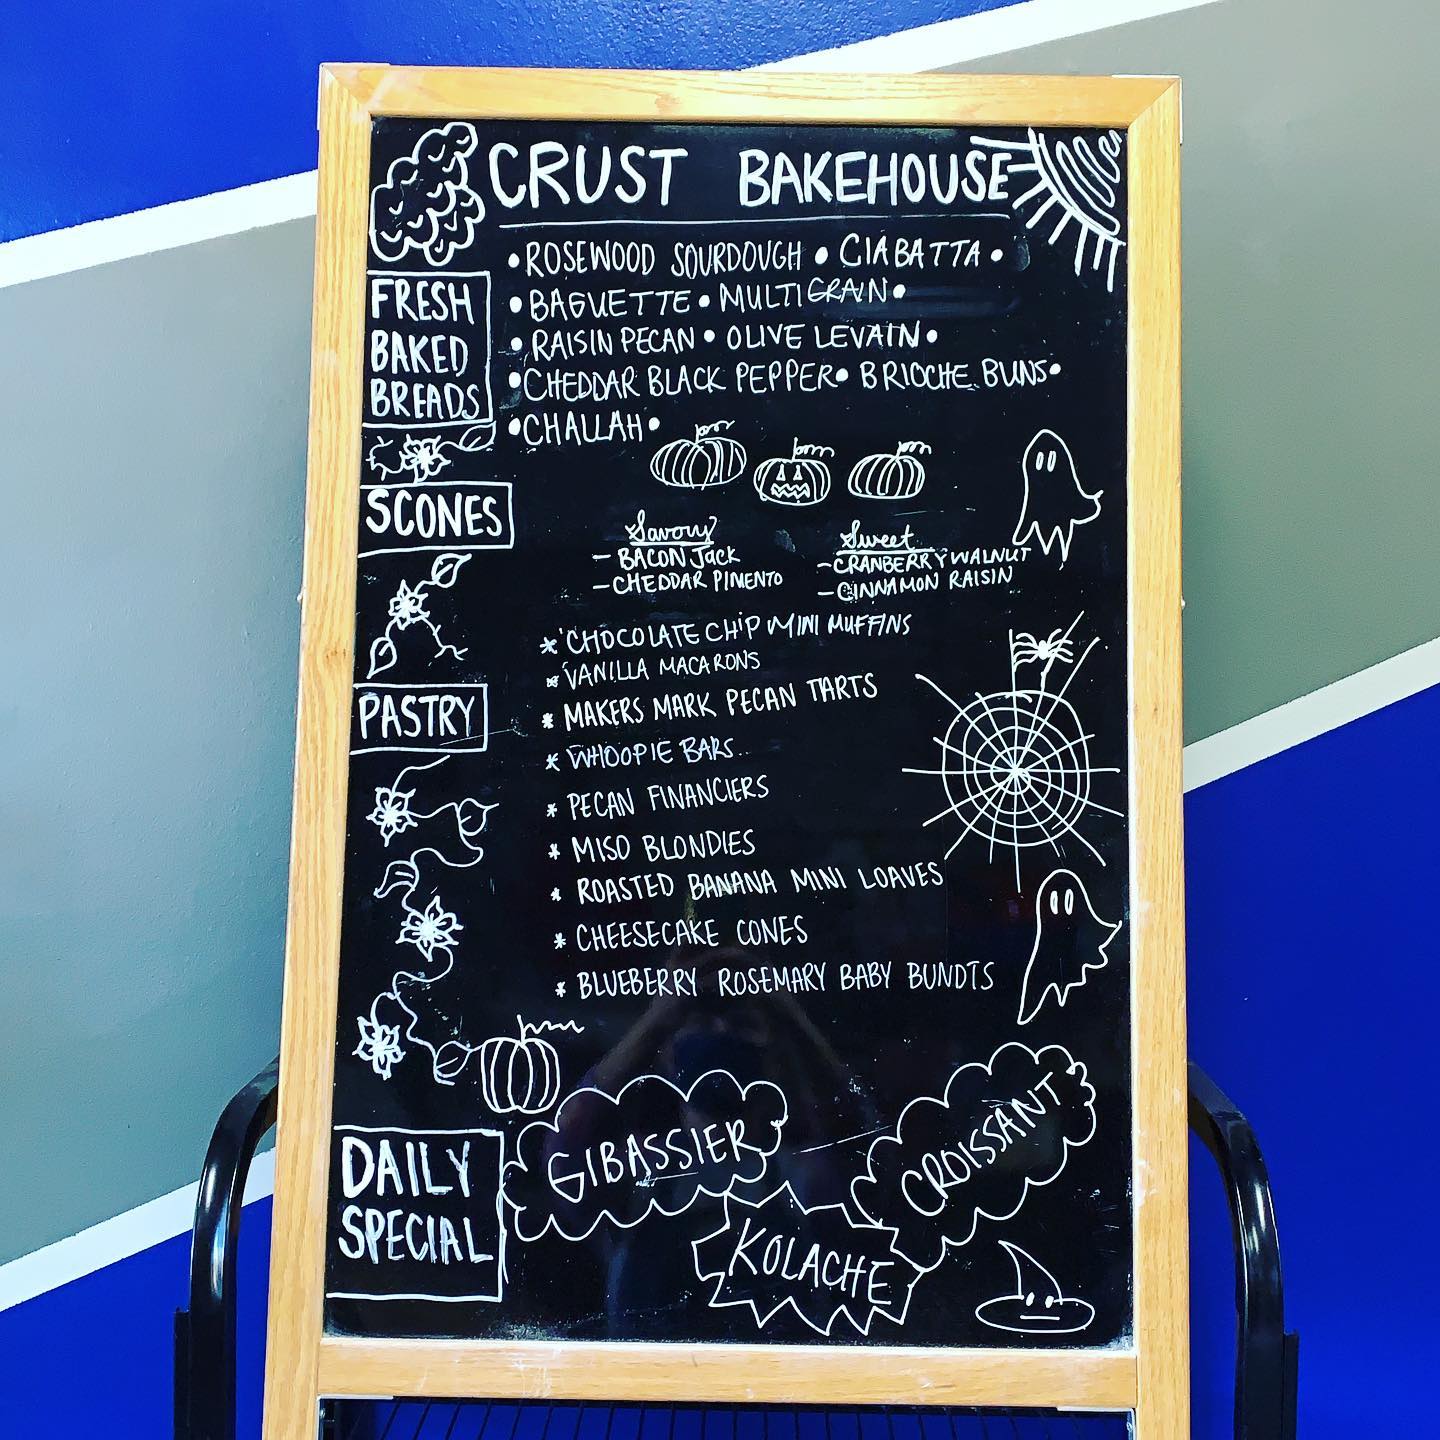 CRUST BAKEHOUSE
FRESH
BAKED
BREADS
•ROSEWOOD SOURDOUGH • CIABATTA •
•BAGUETTE • MULTIGRAIN•
•RAISIN PECAN • OLIVE LEVAIN•
•CHEDDAR BLACK PEPPER• BRIOCHE BUNS•
•CHALLAH•
SCONES
Savory
– BACON JACK
– CHEDDAR PIMENTO
Sweet
– CRANBERRY WALNUT
– CINNAMON RAISIN
PASTRY
* CHOCOLATE CHIP MINI MUFFINS
* VANILLA MACARONS
* MAKERS MARK PECAN TARTS
* WHOOPIE BARS
* PECAN FINANCIERS
* MISO BLONDIES
* ROASTED BANANA MINI LOAVES
* CHEESECAKE CONES
* BLUEBERRY ROSEMARY BABY BUNDTS
DAILY
SPECIAL
GIBASSIER
KOLACHE
CROISSANT